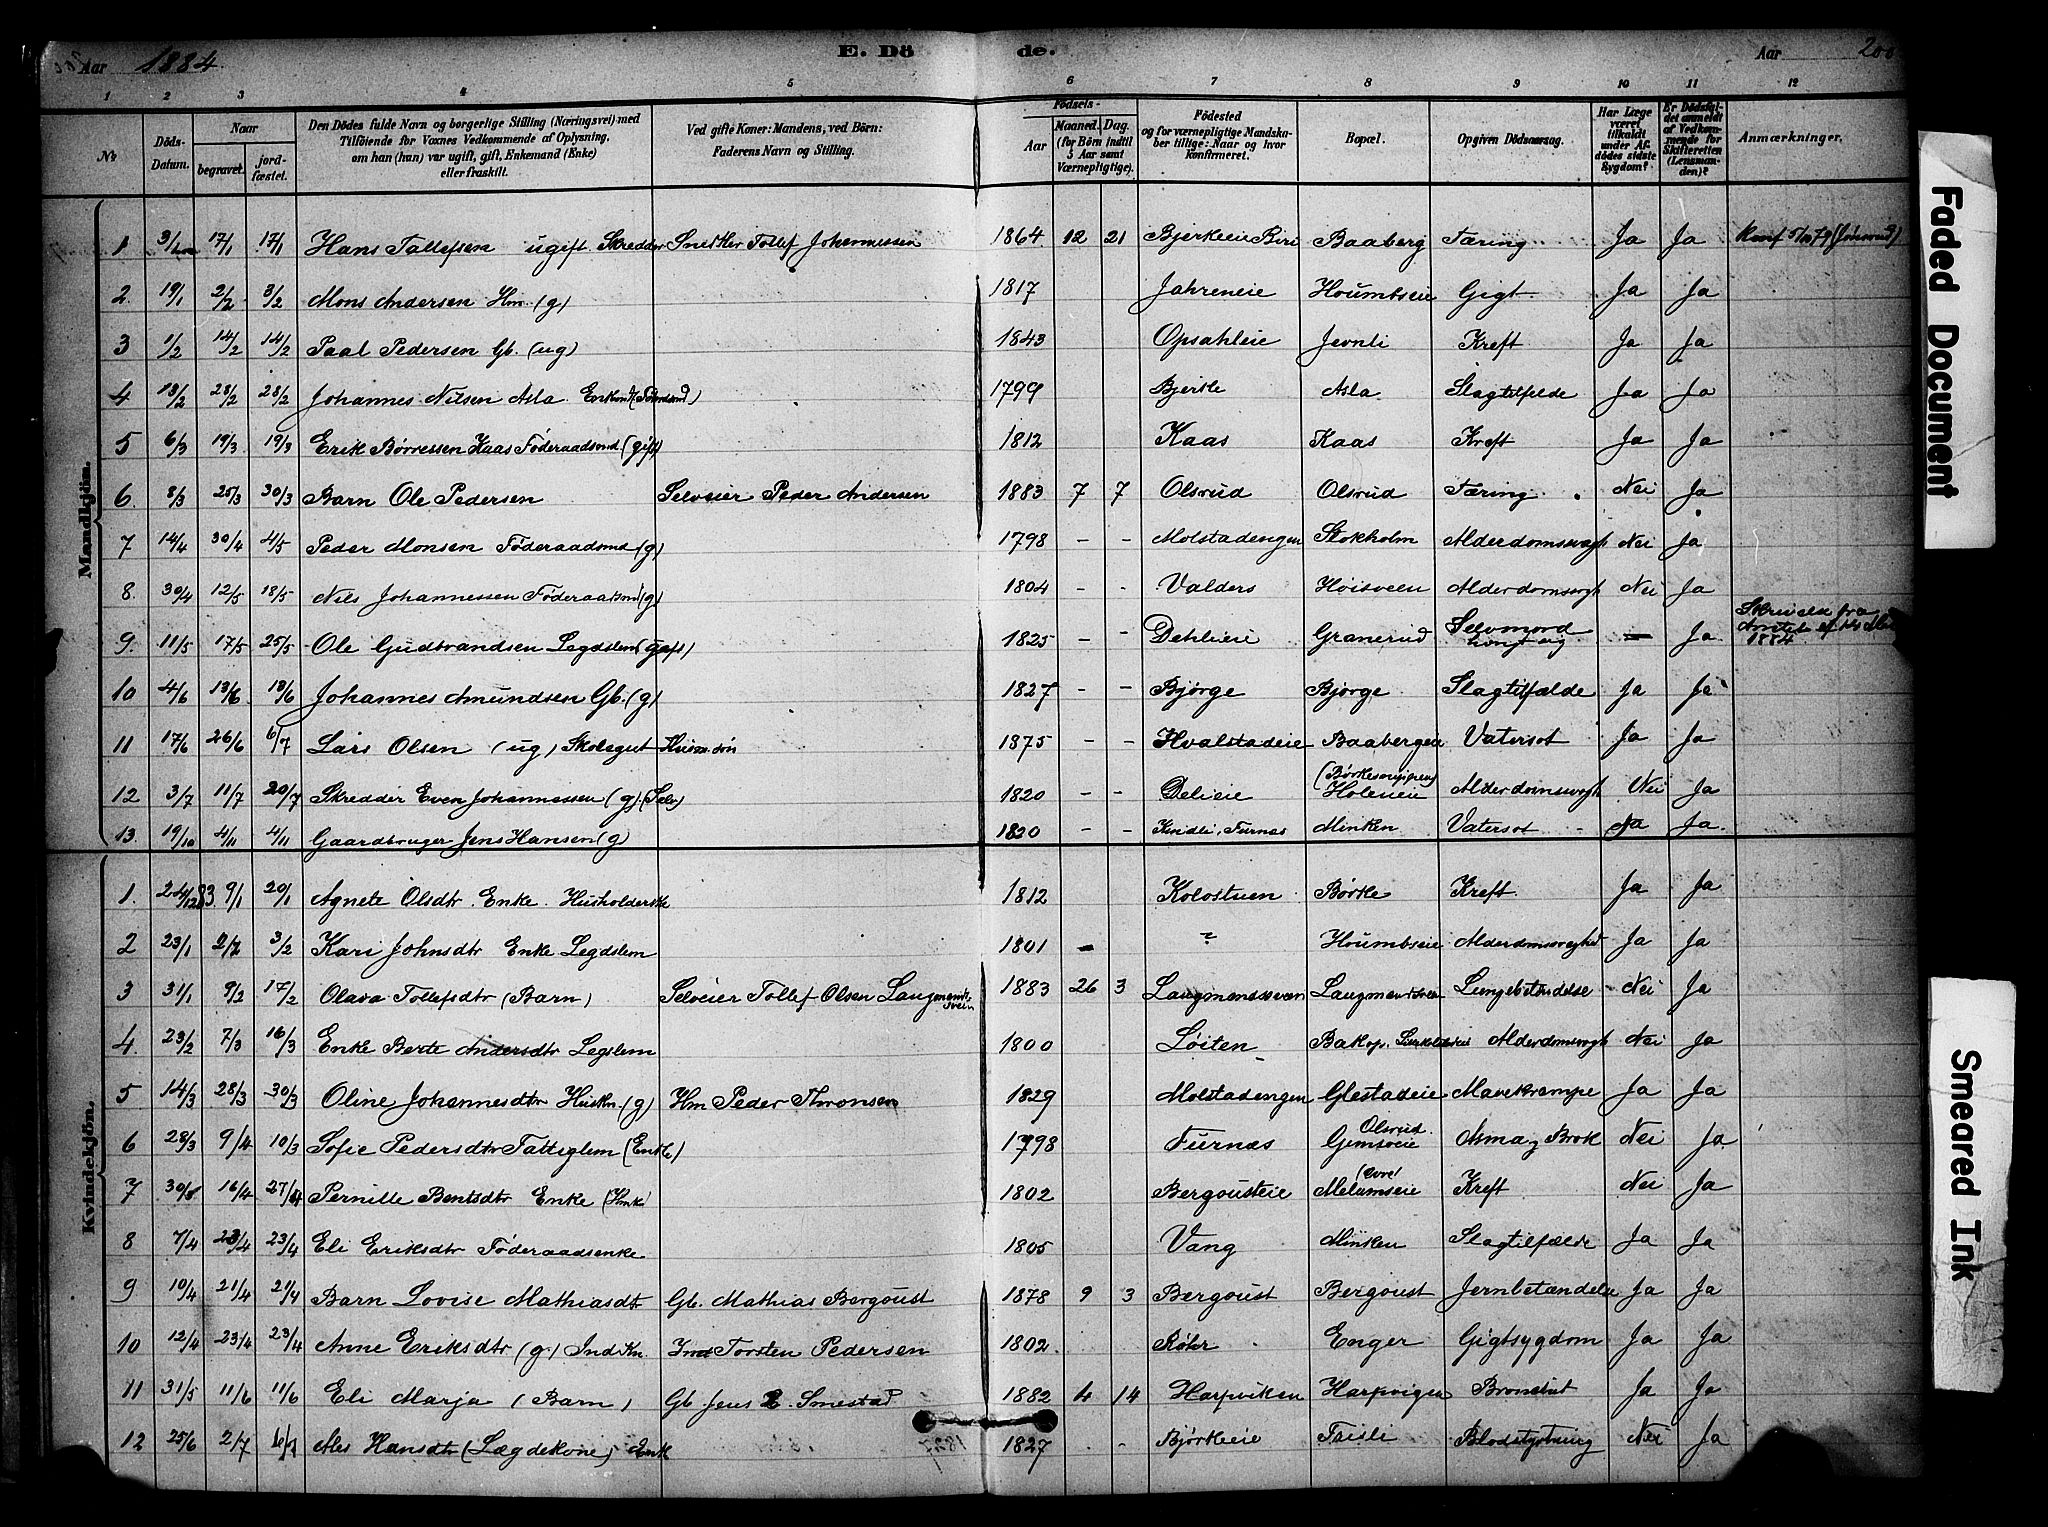 Aar 1884. E. Dö de. Aar 200
1 2 3 4 5 6 7 8 9 10 11 12
No
Döds-Datum.
Naar
begravet.
jord-fæstet.
Den Dödes fulde Navn og borgerlige Stilling (Næringsvei) med
Tilföiende for Voxnes Vedkommende af Oplysning,
om han (hun) var ugift, gift, Enkemand (Enke)
eller fraskilt.
Ved gifte Koner: Mandens, ved Börn:
Faderens Navn og Stilling.
Födsels-
Aar
Maaned. Dag.
(for Börn indtil
5 Aar samt
Værnepligtige).
Födested
og for værnepligtige Mandska-
ber tillige: Naar og hvor
konfirmeret.
Bopæl.
Opgiven Dödsaarsag.
Har Læge
været
tilkaldt
under Af-
dödes sidste
Sygdom?
Er Dödsfal-
det anmeldt
af Vedkom-
mende for
Skifteretten
(Lensman-
den)?
Anmærkninger.
Mandkjön.
1 3/1 17/1 17/1 Hans Tollefsen ugift Skredder Snedker Tollef Johannessen 1864 12 21 Bjerkeeie Biri Baaberg Tæring Ja Ja Konf 5/10 79
2. 19/1 2/2 3/2 Mons Andersen Hm. (g) 1817 Jahreneie Houmbseie Gigt. Ja Ja
3 1/2 14/2 14/2 Paal Pedersen Gb. (ug) 1843 Opsahleie Jevnli Kreft Ja Ja
4 13/2 28/2 28/2 Johannes Nilsen Asla. 1799 Bjerke Asla Slagtilfelde Ja Ja
5 6/3 19/3 19/3 Erik Børresen Kaas Føderaadsmd (gift) 1812 Kaas Kaas Kreft Ja Ja
6. 8/3 25/3 30/3 Barn Ole Pedersen Selveier Peder Andersen 1883 7 7 Olsrud Olsrud Tæring Nei Ja
7 14/4 30/4 4/5 Peder Monsen Føderaadsmd (g) 1798 - - Molstadengen Stokholm Alderdomssvagh Nei Ja
8. 30/4 12/5 18/5 Nils Johannessen Føderaadsmd (g) 1804 - - Valders Høisveen Alderdomssvagh Nei Ja
9. 11/5 17/5 25/5 Ole Gudbrandsen Legdslem (gift) 1825 - - Dehlieie Granerud Selvmord hængt sig — Ja 1884
10 4/6 13/6 13/6 Johannes Amundsen Gb. (g) 1827 - - Bjørge Bjørge Slagtilfælde Ja Ja
11 17/6 26/6 6/7 Lars Olsen (ug) Skolegut Husm. søn 1875 - - Hvalstadeie Baabergeie Vatersot Ja Ja
12 3/7 11/7 20/7 Skredder Even Johannessen (g) (Selv) 1820 - - Delieie Holeneie Alderdomssvagh Nei Ja
13. 19/10 4/11 4/11 Gaardbruger Jens Hansen (g) 1820 - - Kindli, Furnæs Minken Vatersot Ja Ja.
Kvindekjön.
1. 24/12 83. 9/1 20/1 Agnete Olsdtr. Enke. Husholderske 1812 Kolostuen Børke Kreft. Ja Ja
2 23/1 2/2 3/2 Kari Johnsdtr Enke Legdslem 1801 - ? Houmbseie Alderdomssvaghed Ja Ja
3 31/1 9/2 17/2 Olava Tollefsdtr (Barn) Selveier Tollef Olsen Laugmandssveen 1883 26 3 Laugmandssveen Laugmandssveen Lungebetændelse Nei Ja
4. 23/2 7/3 16/3 Enke Berte Andersdtr Legslem 1800 Løiten Alderdomssvagh Nei Ja
5 14/3 28/3 30/3 Oline Johannesdtr Huskn (g) Hm Peder Thronsen 1829 Molstadengen Glestadeie Mavekrampe Ja Ja
6 28/3 9/4 10/3 Sofie Pedersdtr Fattiglem (Enke) 1798 Furnæs Olsrud Gimsøeie Asma og Brok Nei Ja
7 30/3 16/4 27/4 Pernille Bentsdtr Enke (Hmk) 1802 Bergousteie Melumseie Kreft Nei Ja
8 7/4 23/4 23/4 Eli Eriksdtr Føderaadsenke 1805 Vang Minken Slagtilfælde Ja Ja
9 10/4 21/4 21/4 Barn Lovise Mathiasdtr Gb. Mathias Bergoust 1878 9 3 Bergoust Bergoust Jernbetændelse Ja Ja
10 12/4 23/4 23/4 Anne Eriksdtr (g) Ind.Kn. Ind Torsten Pedersen 1802. Røhr Enger Gigtsygdom Ja Ja
11 31/5 11/6 11/6 Eli Marja (Barn) Gb. Jens E. Smestad 1882 4 14 Harpviken Harpvigen Bronchit Ja Ja
12 25/6 2/7 6/7 Ales Hansdtr (Lægdekone) Enke 1827 - - Bjørkeeie Frisli Blodstyrtning Nei Ja
Faded Document
Smeared Ink